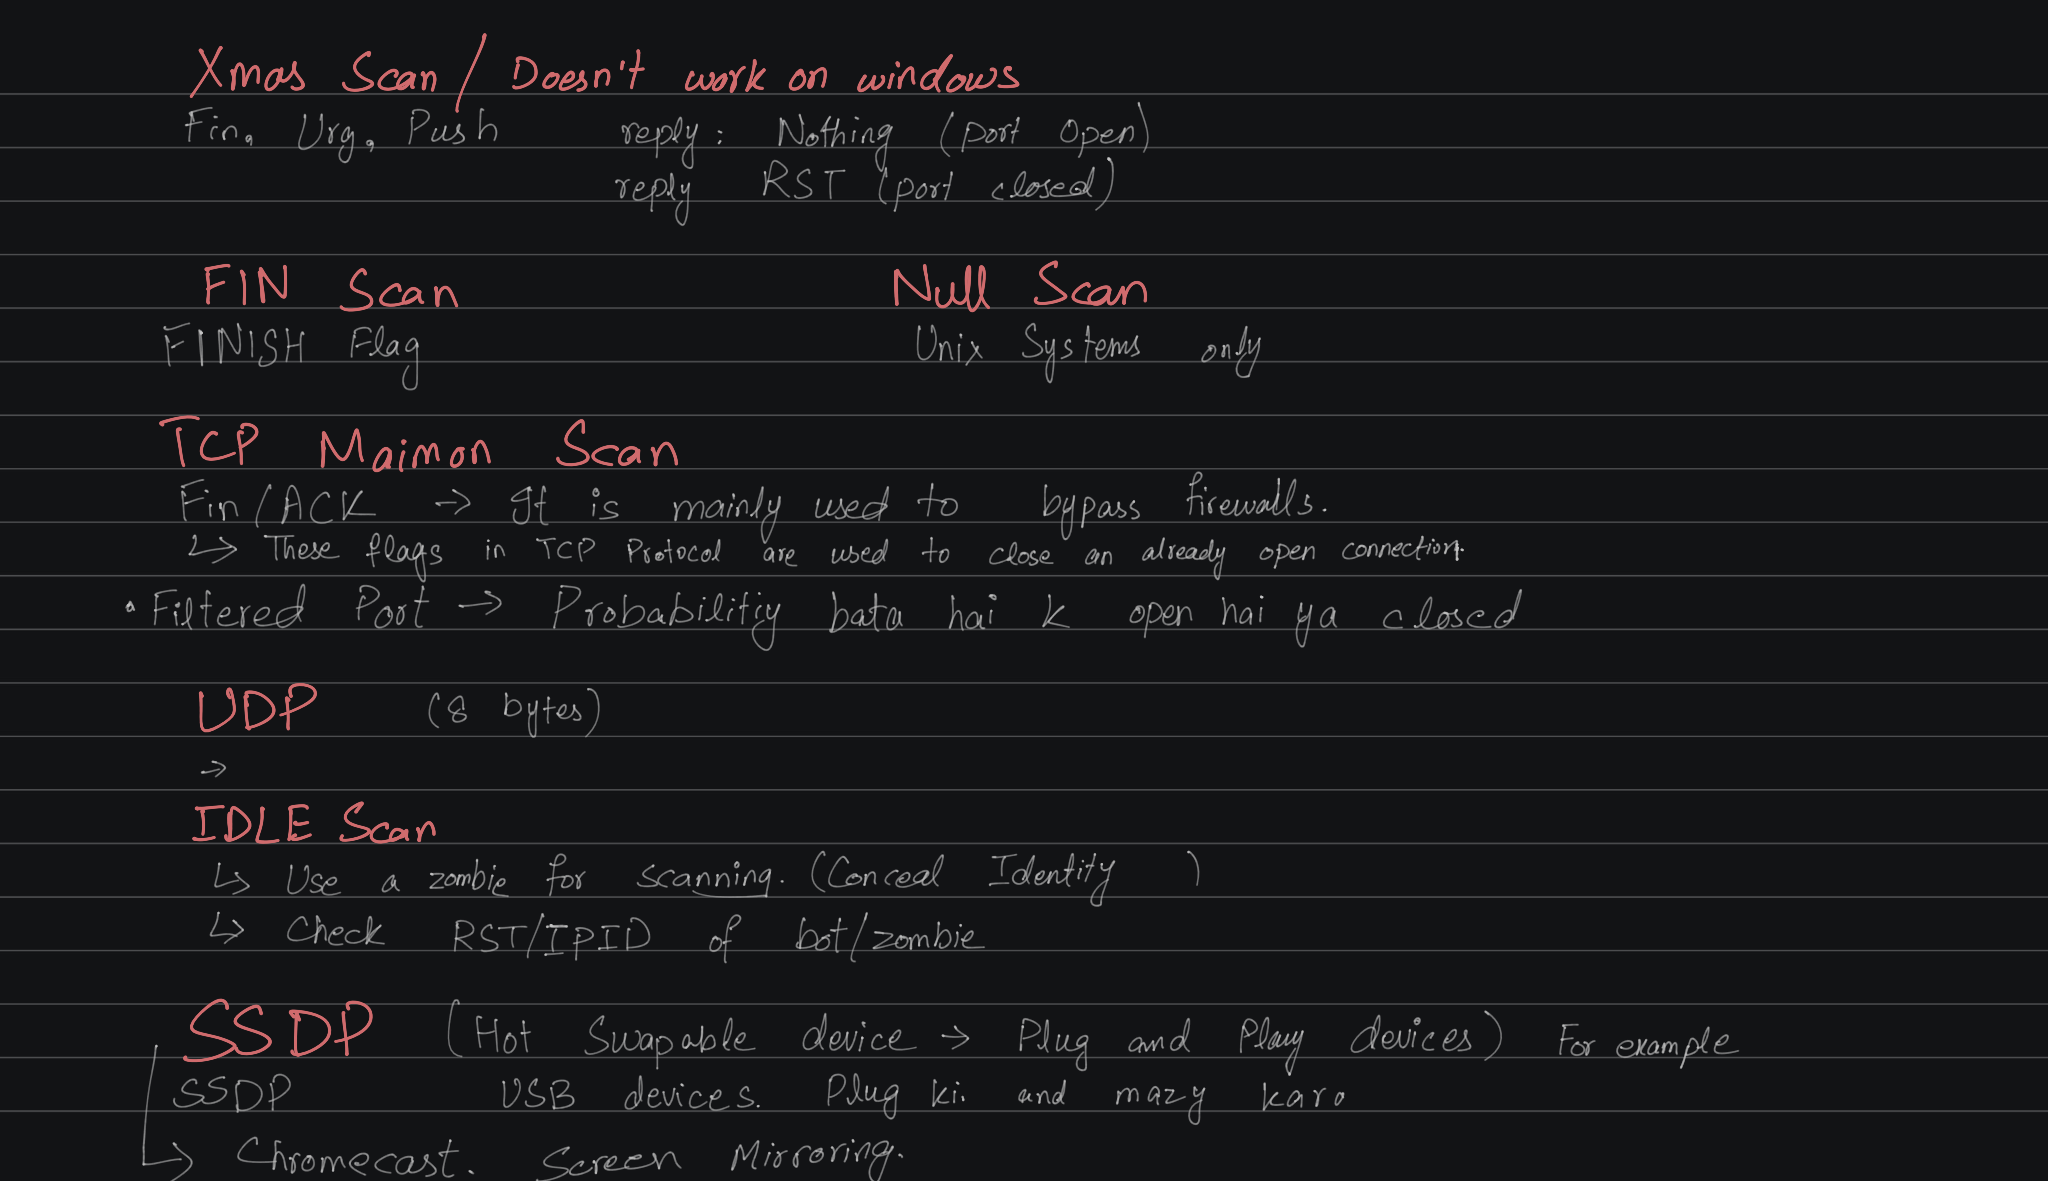 Xmas Scan / Doesn't work on windows
Fin, Urg, Push reply: Nothing (port Open)
reply RST (port closed)
FIN Scan Null Scan
FINISH Flag Unix Systems only
TCP Maimon Scan
Fin/ACK → It is mainly used to bypass firewalls.
↳ These flags in TCP Protocol are used to close an already open connection.
• Filtered Port → Probabilitiy bata hai k open hai ya closed
UDP (8 bytes)
→
IDLE Scan
↳ Use a zombie for scanning. (Conceal Identity )
↳ Check RST/IPID of bot/zombie
SSDP (Hot Swapable device → Plug and Play devices) For example
SSDP USB devices. Plug ki. and mazy karo
↳ Chromecast. Screen Mirroring.